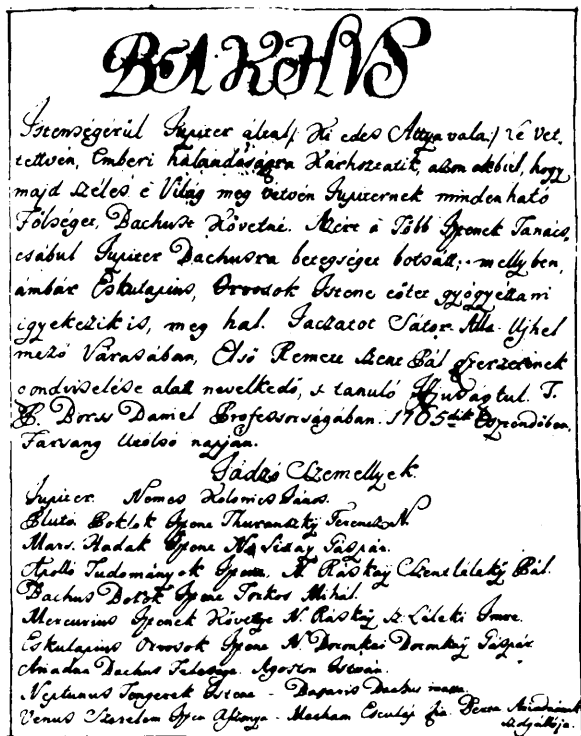 BAKHVS
Istenségérül Iupiter által /: Ki edes Attya vala :/ le vet,
tettvén, Emberi halandóságra Karhoztatik, azon okbúl, hogy
majd széles é Világ meg vetvén Iupiternek mindenható
Fölséget, Bachust Követné. Mére à Több Istenek Tanács,
csábul Iupiter Bachusra betegséget botsátt; mellyben,
ámbár Eskulapius, Orvosok Istene eőtet gyógyéttani
igyekezik is, meg hal. Iaczatot Sátor Allya Ujhel
mező Várasában, Első Remete szent Pál Szerzetinek
gondviselése alatt nevelkedő, s tanuló Iffiuságtul. T.
P. Daniel Professorságában. 1765dik Esztendőben,
Farsang Utolsó napján.
Iádzó Szemellyek.
Iupiter. Nemes Kolonics János.
Pluto Poklok Istene Thuranszky Ferencz N.
Mars. Hadak Istene N. Gáspár.
Apolló Tudományok Istene, N. Ráskay Szent Pál.
Bachus Borok Istene Torkos Mihál.
Mercurius Istenek Követtye N. Ráskay Sz. Léleki Imre.
Eskulapius Orvosok Istene N. Gáspár
Ariadna Bachus Felesége. Agoston István.
Neptunus Tengerek Istene - Bachus
Venus Szerelem Isten Aszonya - Esculap fia. Ariadnának
szolgállója.